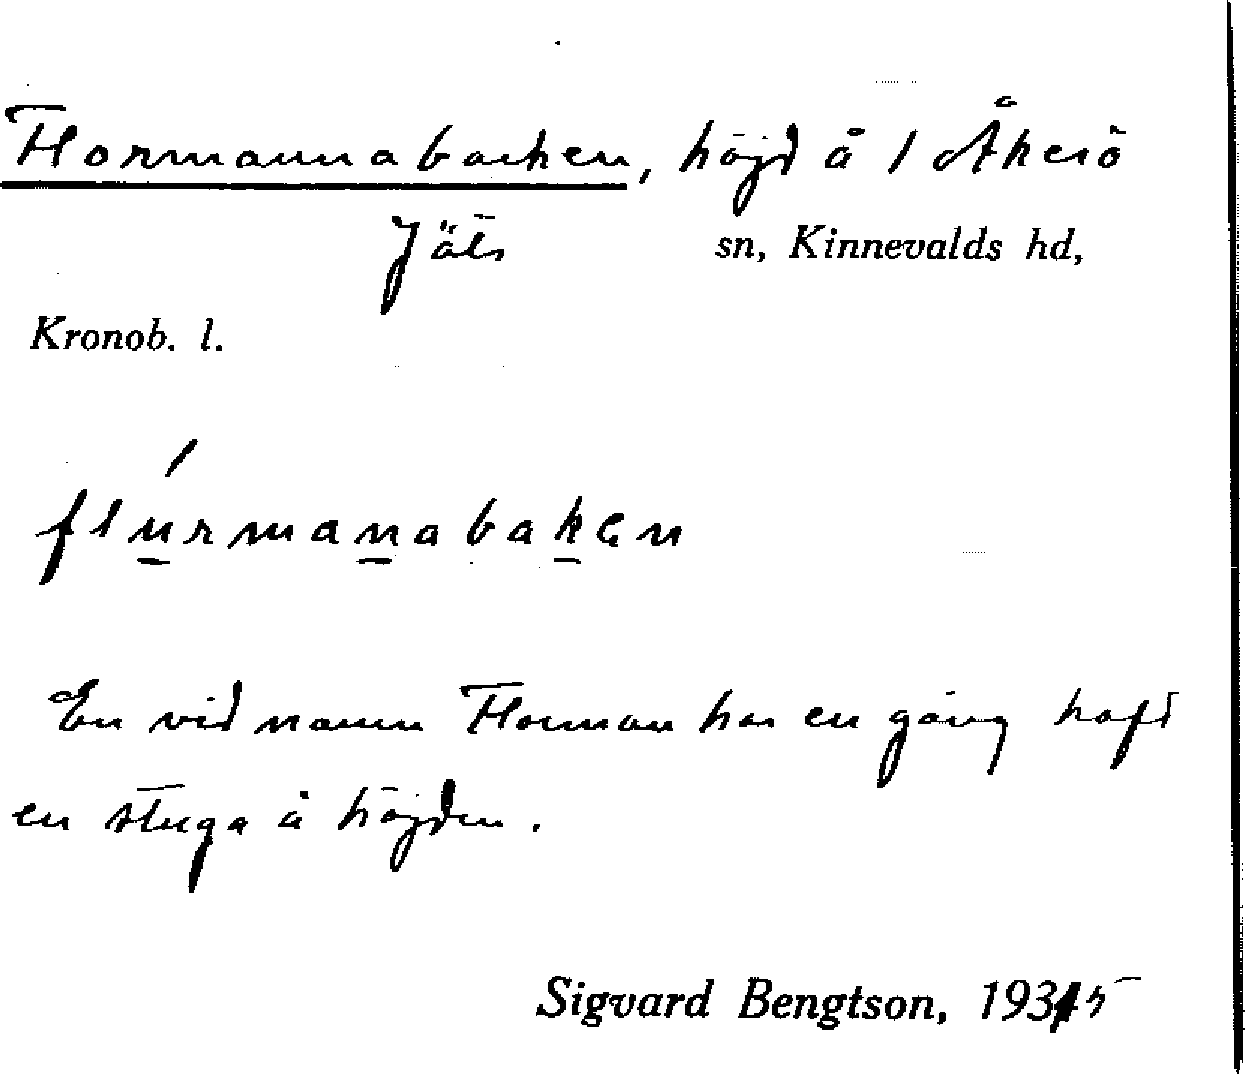 Flormannabacken, höjd å 1 Åkerö
Jäts sn, Kinnevalds hd,
Kronob. l.
flu̲rman̲abak̲ən
En vid namn Florman har en gång haft
en stuga å höjden.
Sigvard Bengtson, 1935